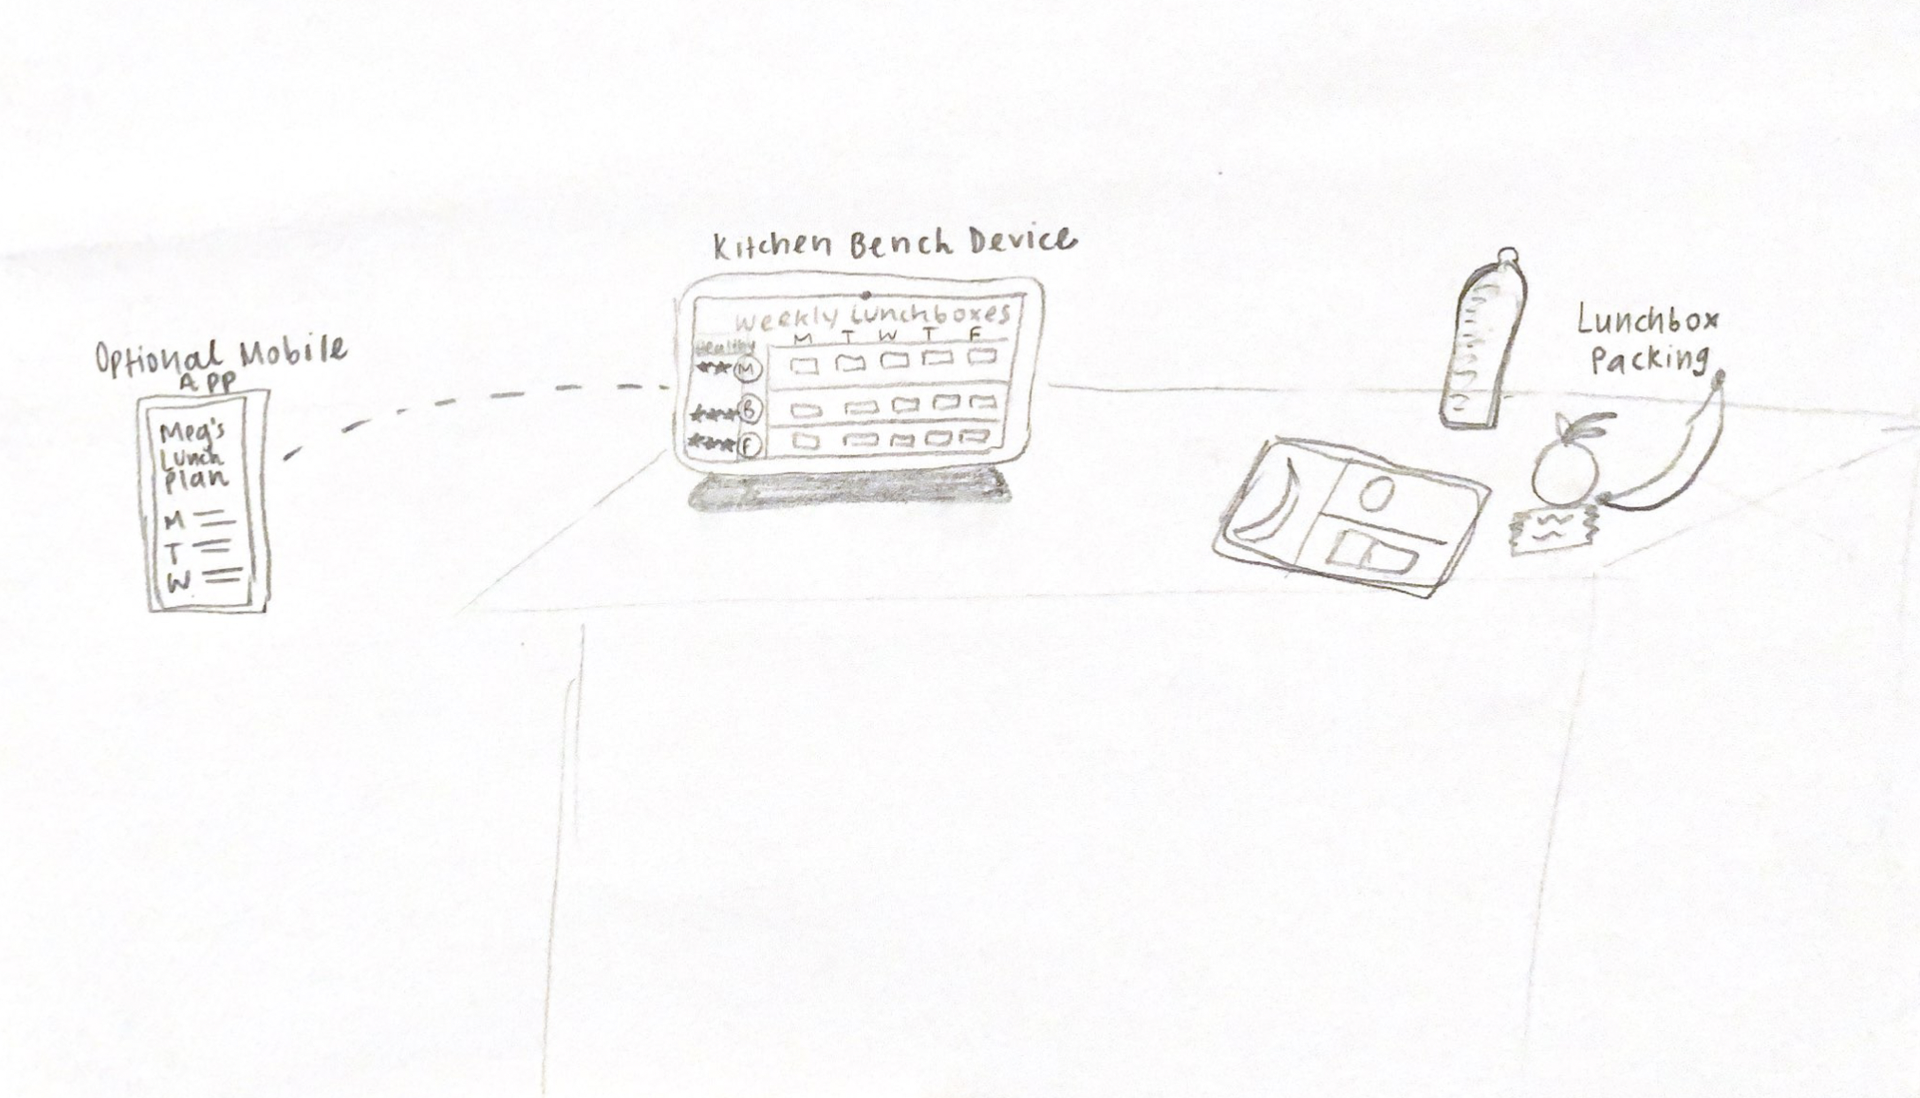 Optional Mobile
App
Meg's
Lunch
Plan
M
T
W
Kitchen Bench Device
Weekly Lunchboxes
M T W T F
Healthy
M
B
F
Lunchbox
Packing